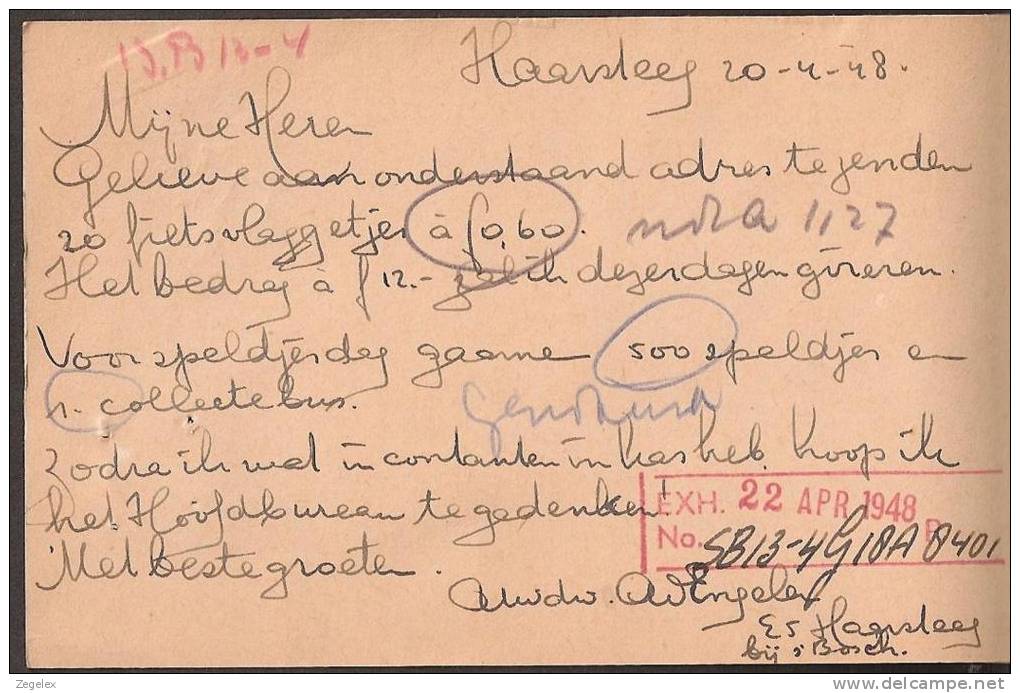 S.B 13-4
Haarsteeg 20-4-48.
Mijne Heren
Gelieve aan onderstaand adres te zenden
20 fietsvlaggetjes à f 0,60. nota 1127
Het bedrag à f 12.- zal ik dezer dagen gireren.
Voor speldjesdag gaarne 500 speldjes en
collectebus.
Zodra ik wat in contanten in kas heb, hoop ik
het Hoofdbureau te gedenken!
EXH. 22 APR 1948
No. SB13-4 G18A 8401
Met beste groeten.
Uwdw. AvEngelen
E5 Haarsteeg
bij 's Bosch.
Zegelex
delcampe.net